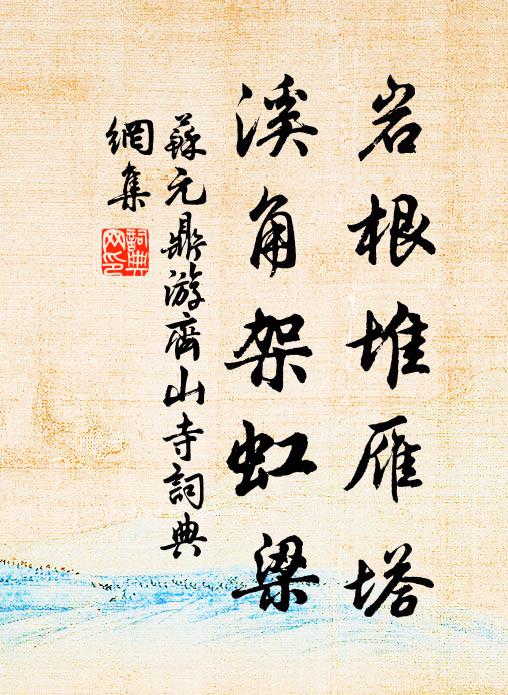 岩根堆雁塔
溪角架虹梁
蘇元鼎游齊山寺詞典
網集
詞典
网印